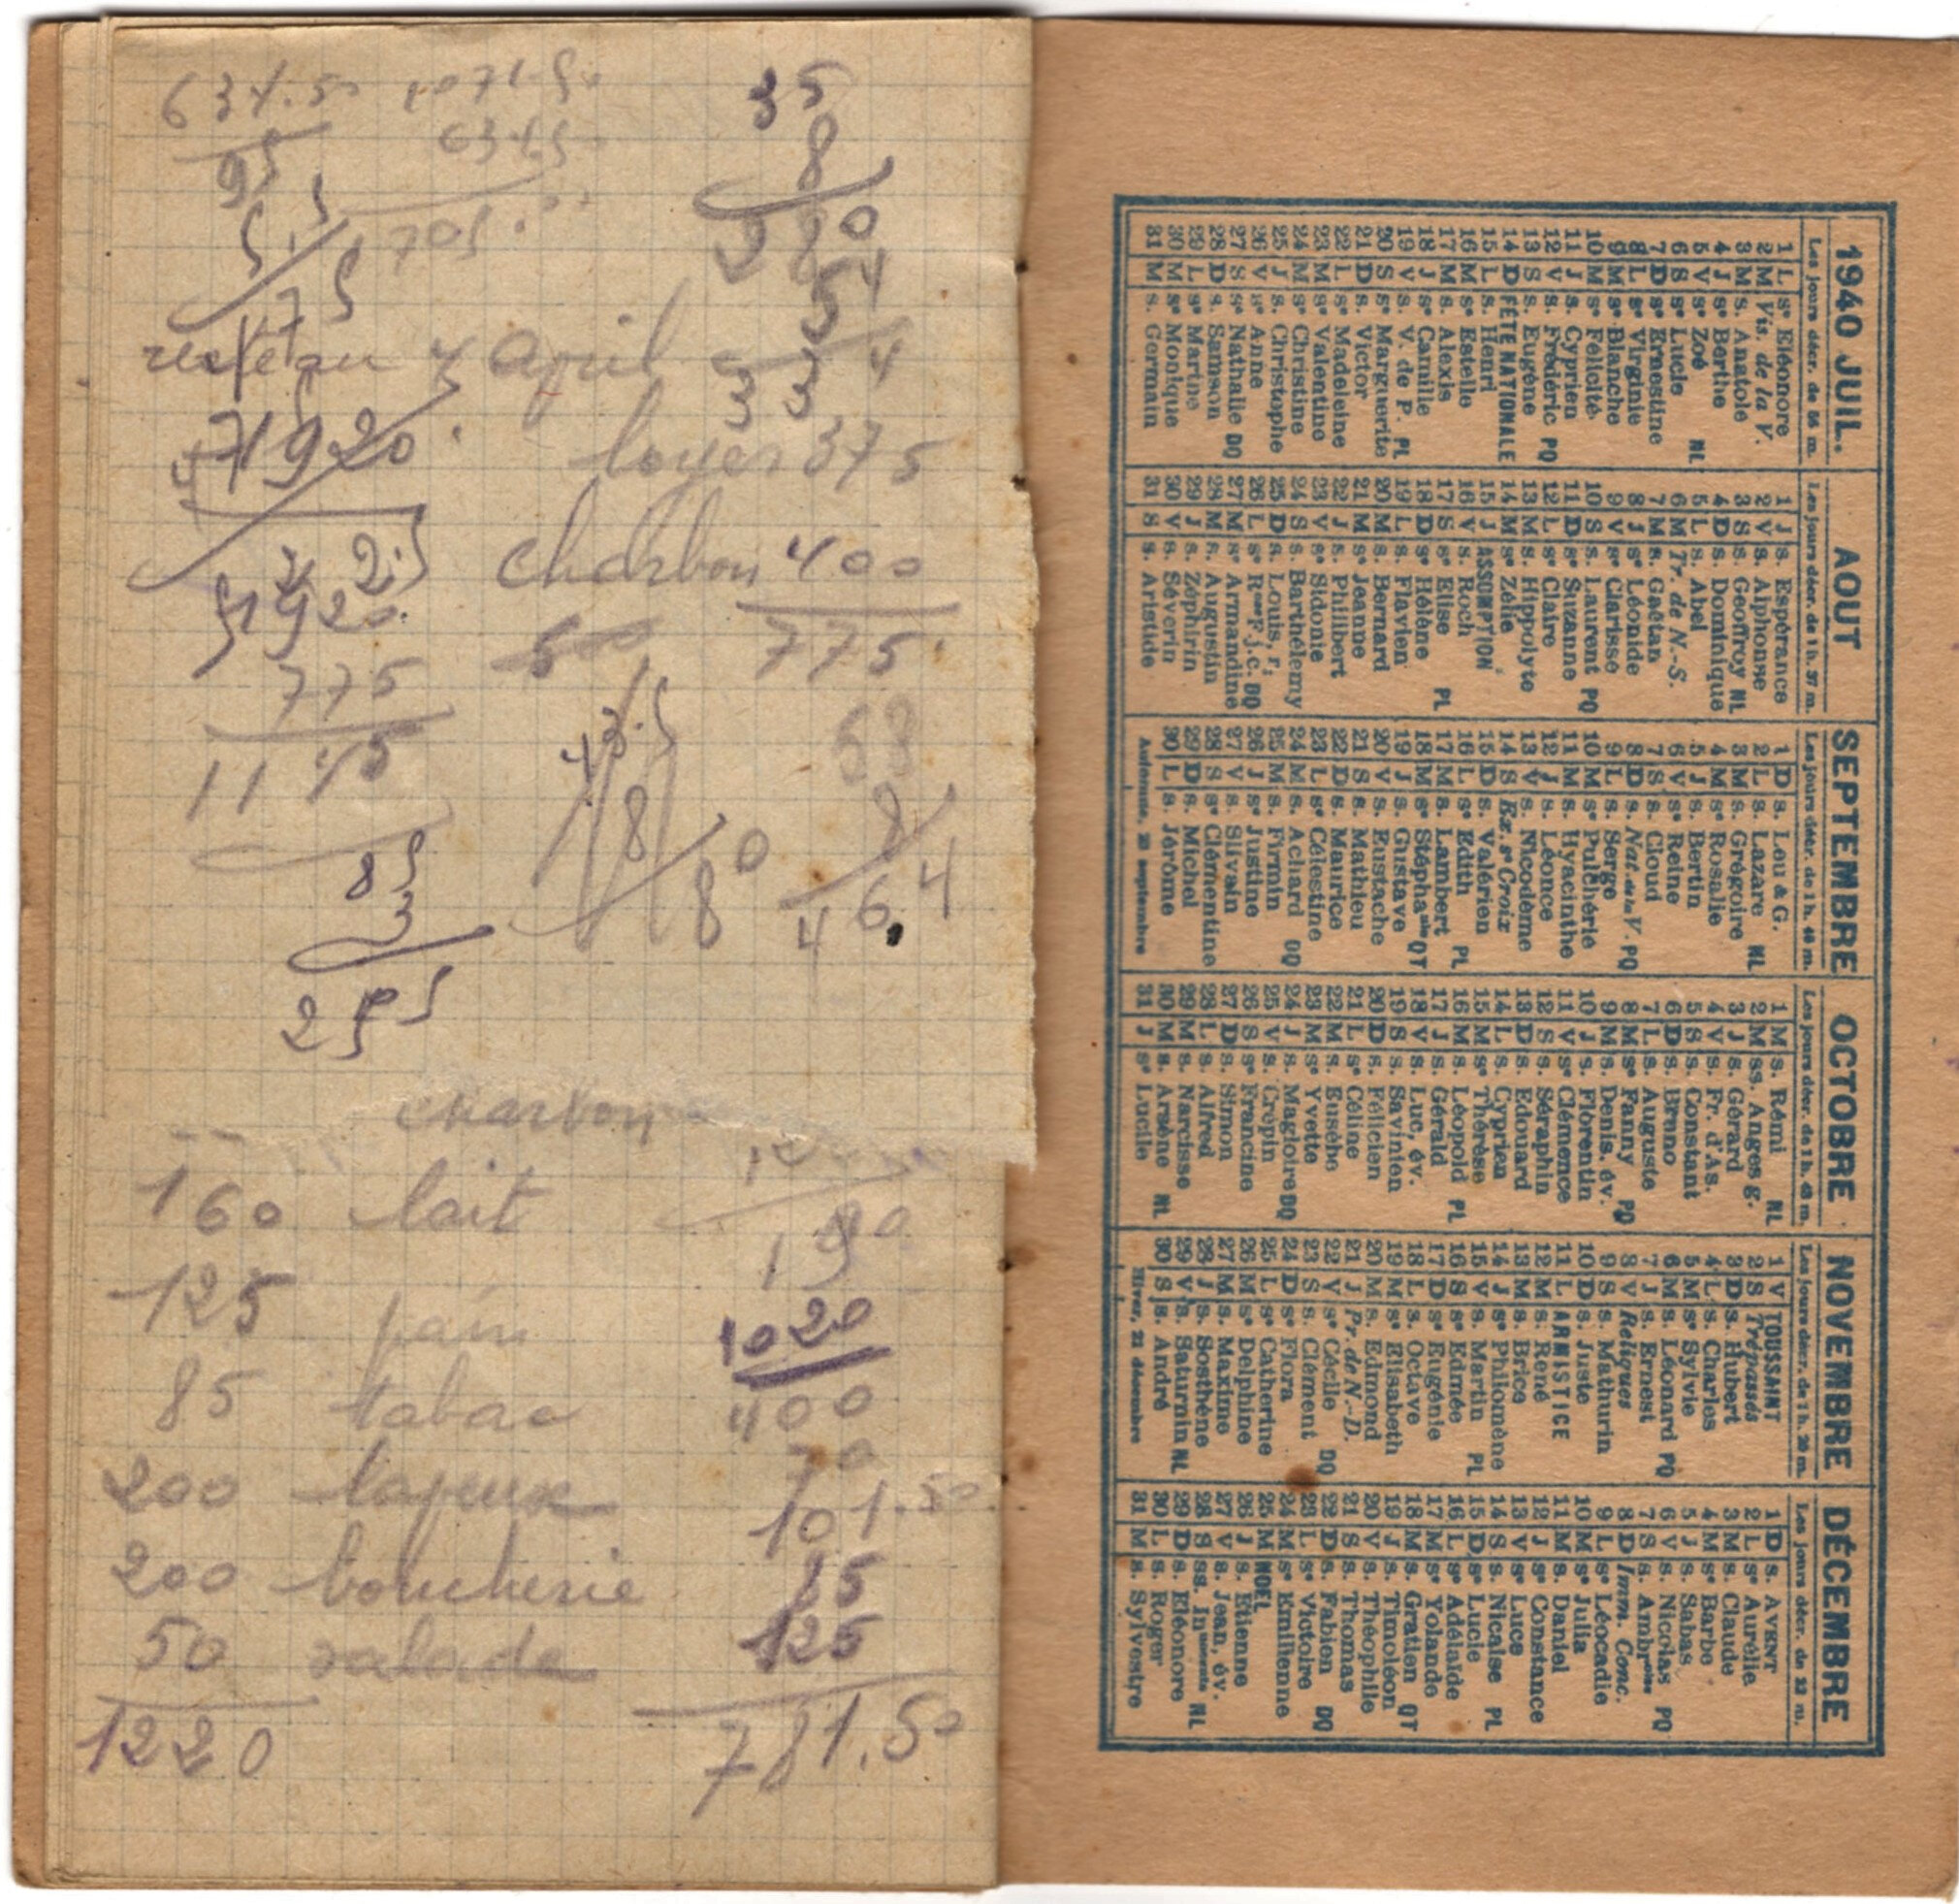 634.50
95
35
8
280
54
334
reste au 4 April
1920
loyer 375
charbon 400
775
1920
775
1145
58
8
464
8
80
85
3
255
charbon
160 lait
125 pain
1020
85 tabac
400
70
200
101.50
200 boucherie
85
50 salade
125
1220
781.50
1940 JUIL.
Les jours décr. de 56 m.
1 L se Eléonore
2 M Vis. de la V.
3 M s. Anatole
4 J se Berthe
5 V se Zoé NL
6 S se Lucie
7 D se Ernestine
8 L se Virginie
9 M se Blanche
10 M se Félicité
11 J s. Cyprien
12 V s. Frédéric PQ
13 S s. Eugène
14 D FÊTE NATIONALE
15 L s. Henri
16 M se Estelle
17 M s. Alexis
18 J se Camille
19 V s. V. de P. PL
20 S se Marguerite
21 D s. Victor
22 L se Madeleine
23 M se Valentine
24 M se Christine
25 J s. Christophe
26 V se Anne
27 S se Nathalie DQ
28 D s. Samson
29 L se Marthe
30 M se Monique
31 M s. Germain
AOUT
Les jours décr. de 1 h. 37 m.
1 J s. Espérance
2 V s. Alphonse
3 S s. Geoffroy NL
4 D s. Dominique
5 L s. Abel
6 M Tr. de N.-S.
7 M s. Gaëtan
8 J se Léonide
9 V se Clarisse
10 S s. Laurent PQ
11 D se Suzanne
12 L se Claire
13 M s. Hippolyte
14 M se Zélie
15 J ASSOMPTION
16 V s. Roch
17 S se Elise PL
18 D se Hélène
19 L s. Flavien
20 M s. Bernard
21 M se Jeanne
22 J s. Philibert
23 V se Sidonie
24 S s. Barthélemy
25 D s. Louis, r.
26 L s. DQ
27 M se Armandine
28 M s. Augustin
29 J s. Zéphirin
30 V s. Séverin
31 S s. Aristide
SEPTEMBRE
Les jours décr. de 1 h. 46 m.
1 D s. Leu & G.
2 L s. Lazare NL
3 M s. Grégoire
4 M se Rosalie
5 J s. Bertin
6 V se Reine
7 S s. Cloud
8 D Nat. de la V. PQ
9 L s. Serge
10 M se Pulchérie
11 M s. Hyacinthe
12 J s. Léonce
13 V s. Nicodème
14 S Ex. se Croix
15 D s. Valérien
16 L se Edith PL
17 M s. Lambert
18 M se Stéphanie QT
19 J s. Gustave
20 V s. Eustache
21 S s. Mathieu
22 D s. Maurice
23 L se Célestine
24 M s. Achard DQ
25 M s. Firmin
26 J se Justine
27 V s. Silvain
28 S se Clémentine
29 D s. Michel
30 L s. Jérôme
Automne, 23 septembre
OCTOBRE
Les jours décr. de 1 h. 43 m.
1 M s. Rémi NL
2 M ss. Anges g.
3 J s. Gérard
4 V s. Fr. d'As.
5 S s. Constant
6 D s. Bruno
7 L s. Auguste
8 M se Fanny PQ
9 M s. Denis, év.
10 J s. Florentin
11 V se Clémence
12 S s. Séraphin
13 D s. Edouard
14 L s. Cyprien
15 M se Thérèse
16 M s. Léopold PL
17 J s. Gérald
18 V s. Luc, év.
19 S s. Savinien
20 D s. Félicien
21 L se Céline
22 M s. Eusèbe
23 M se Yvette
24 J s. Magloire DQ
25 V s. Crépin
26 S se Francine
27 D s. Simon
28 L s. Alfred
29 M s. Narcisse
30 M s. Arsène NL
31 J se Lucile
NOVEMBRE
Les jours décr. de 1 h. 20 m.
1 V TOUSSAINT
2 S Trépassés
3 D s. Hubert
4 L s. Charles
5 M se Sylvie
6 M s. Léonard PQ
7 J s. Ernest
8 V Reliques
9 S s. Mathurin
10 D s. Juste
11 L ARMISTICE
12 M s. René
13 M s. Brice
14 J se Philomène
15 V s. Martin PL
16 S se Edmée
17 D se Eugénie
18 L s. Octave
19 M se Elisabeth
20 M s. Edmond
21 J Pr. de N.-D.
22 V se Cécile DQ
23 S s. Clément
24 D se Flora
25 L se Catherine
26 M se Delphine
27 M s. Maxime
28 J s. Sosthène
29 V s. Saturnin NL
30 S s. André
Hiver, 21 décembre
DÉCEMBRE
Les jours décr. de 22 m.
1 D s. AVENT
2 L se Aurélie
3 M s. Claude
4 M se Barbe
5 J s. Sabas
6 V s. Nicolas PQ
7 S s. Ambroise
8 D Imm. Conc.
9 L se Léocadie
10 M se Julia
11 M s. Daniel
12 J se Constance
13 V se Luce
14 S s. Nicaise PL
15 D se Lucie
16 L se Adélaïde
17 M se Yolande
18 M s. Gratien QT
19 J s. Timoléon
20 V s. Théophile
21 S s. Thomas
22 D s. Fabien DQ
23 L se Victoire
24 M se Emilienne
25 M NOEL
26 J s. Etienne
27 V s. Jean, év.
28 S ss. Innocents NL
29 D s. Eléonore
30 L s. Roger
31 M s. Sylvestre